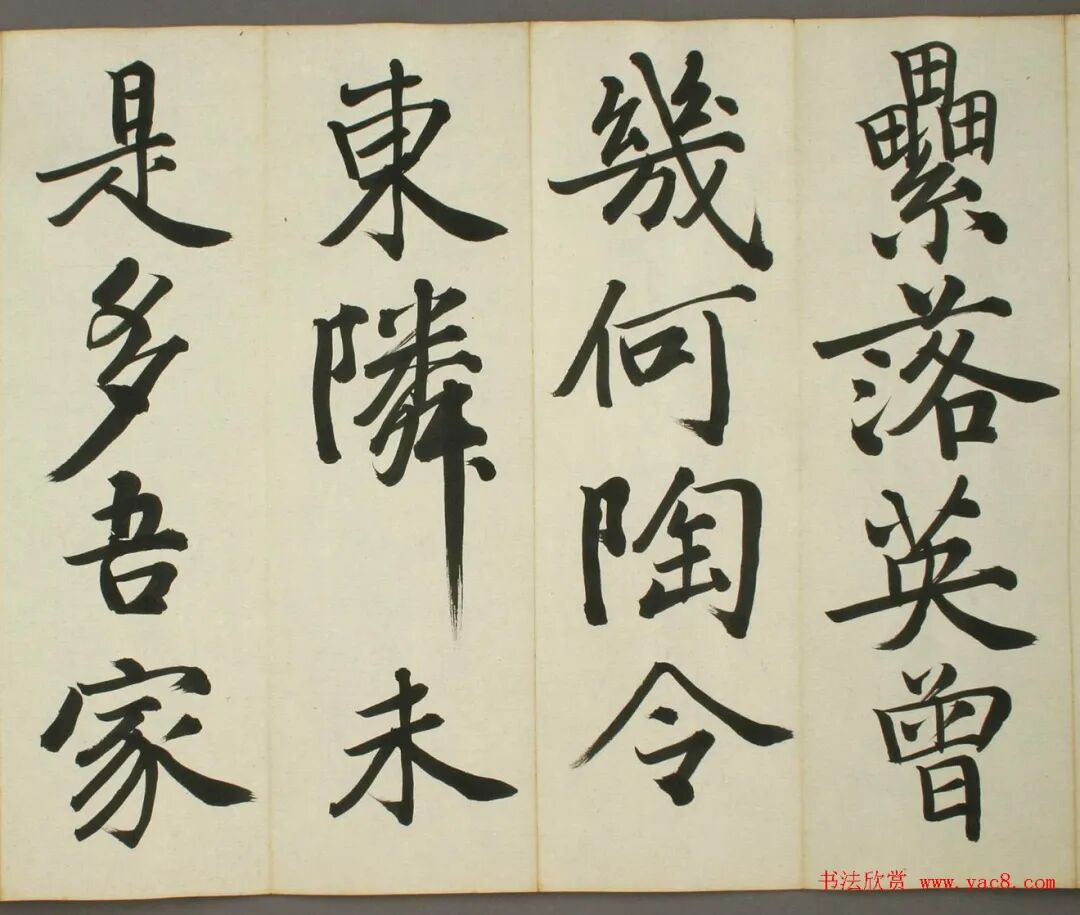 纍落英曾
幾何陶令
東隣未
是多吾家
书法欣赏 www.yac8.com